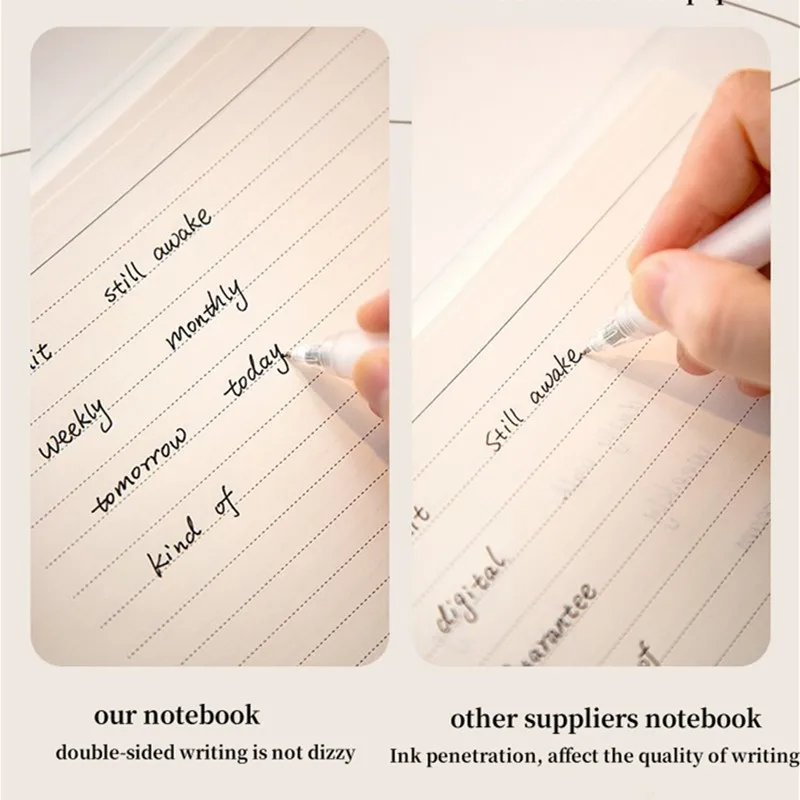 still awake
monthly
it
today
weekly
tomorrow
kind of
Still awake
digital
our notebook
double-sided writing is not dizzy
other suppliers notebook
Ink penetration, affect the quality of writing